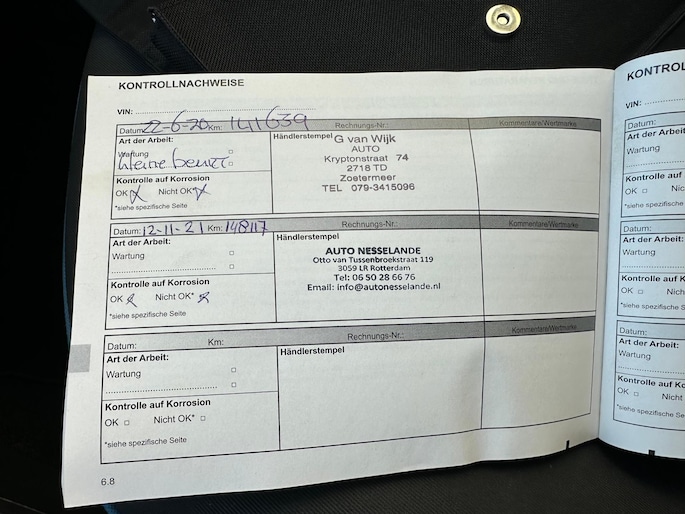 KONTROLLNACHWEISE
VIN:
Datum: 22-6-20 Km: 141639 Rechnungs-Nr.: Kommentare/Wertmarke
Art der Arbeit:
Wartung
kleine beurt
Kontrolle auf Korrosion
OK Nicht OK*
*siehe spezifische Seite
Händlerstempel
G van Wijk
AUTO
Kryptonstraat 74
2718 TD
Zoetermeer
TEL 079-3415096
Datum: 12-11-21 Km: 148117 Rechnungs-Nr.: Kommentare/Wertmarke
Art der Arbeit:
Wartung
Kontrolle auf Korrosion
OK Nicht OK*
*siehe spezifische Seite
Händlerstempel
AUTO NESSELANDE
Otto van Tussenbroekstraat 119
3059 LR Rotterdam
Tel: 06 50 28 66 76
Email: info@autonesselande.nl
Datum: Km: Rechnungs-Nr.: Kommentare/Wertmarke
Art der Arbeit:
Wartung
Kontrolle auf Korrosion
OK Nicht OK*
*siehe spezifische Seite
Händlerstempel
6.8
VIN:
Datum:
Art der Arbeit
Wartung
OK
*siehe
Datum:
Art der Arbeit:
Wartung
OK Nicht
*siehe spezifische
Datum:
Wartung
OK Nicht
*siehe spezifische